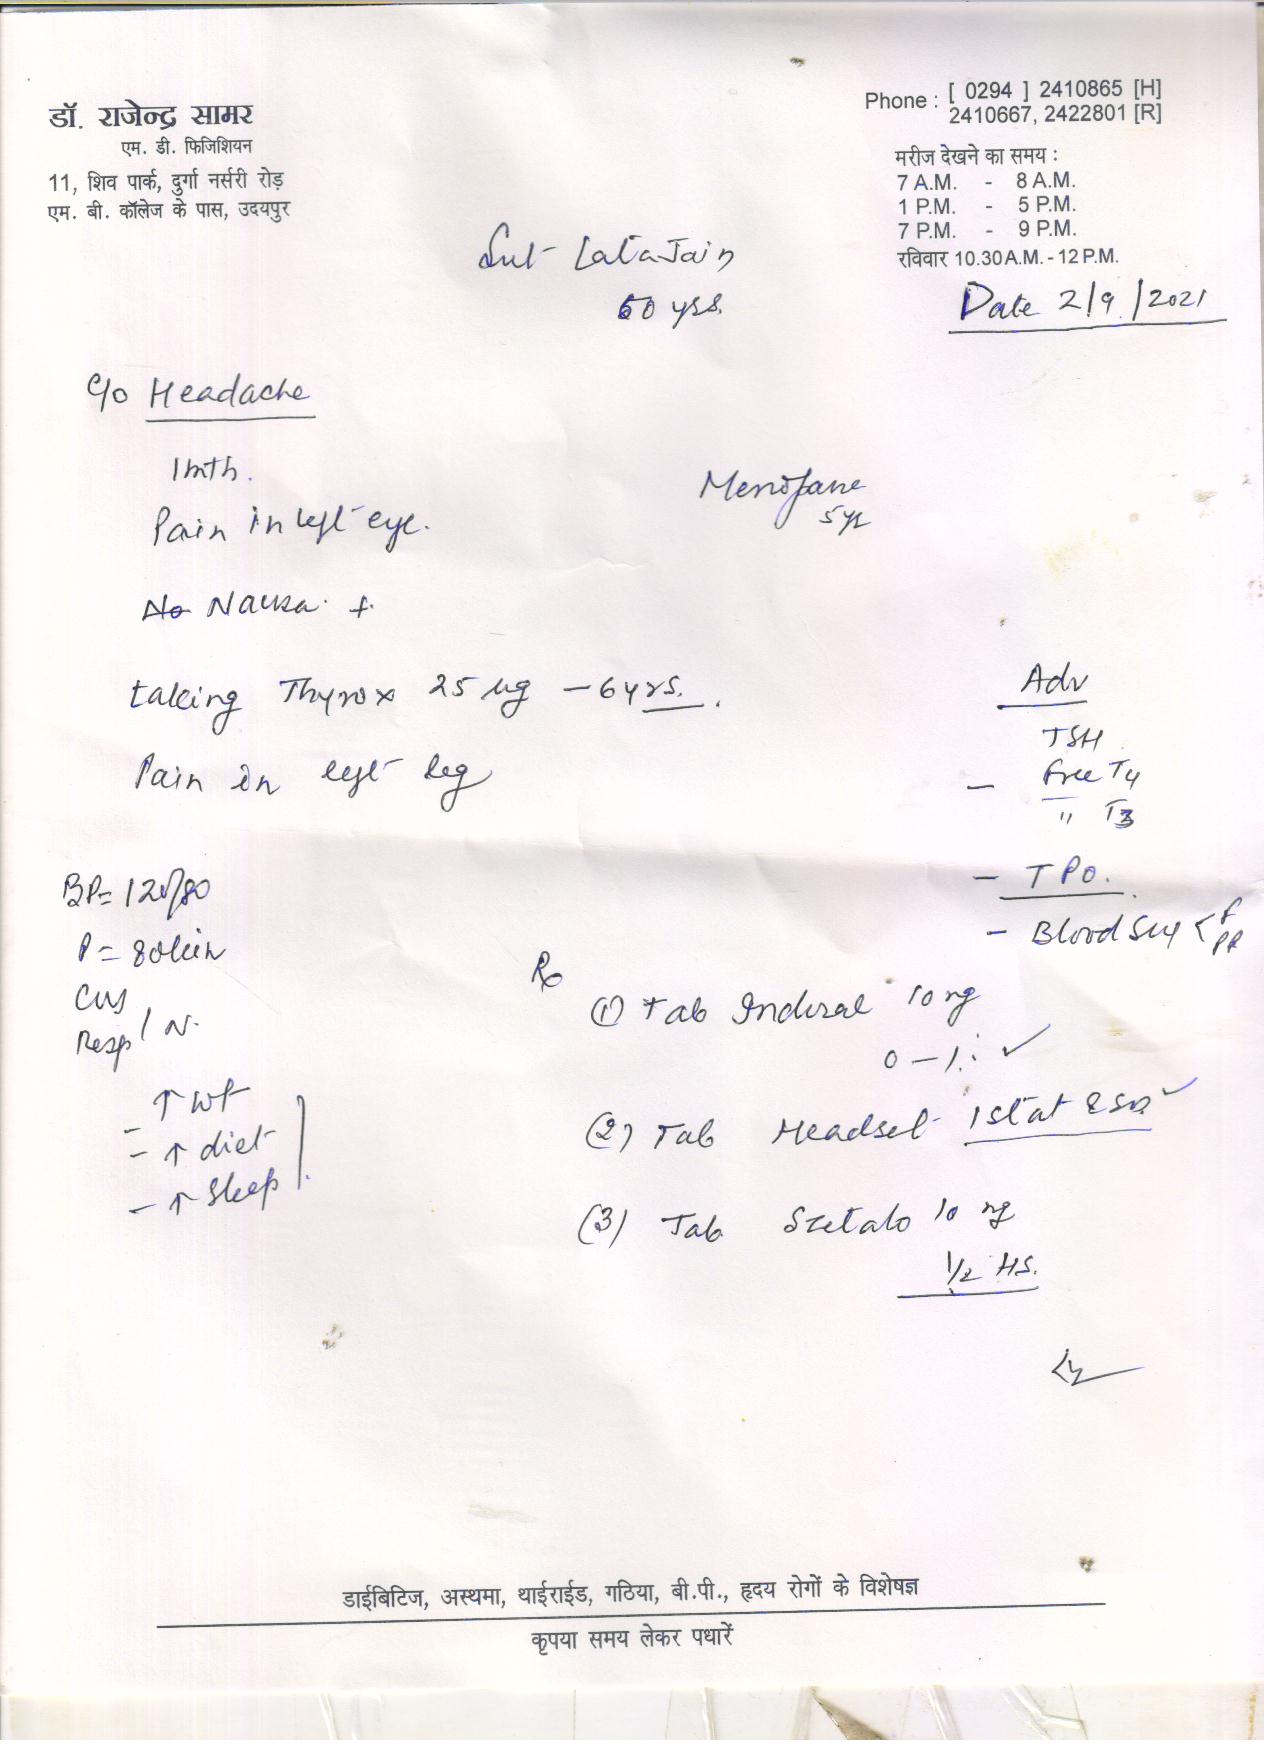 डॉ. राजेन्द्र सामर
एम. डी. फिजिशियन
11, शिव पार्क, दुर्गा नर्सरी रोड़
एम. बी. कॉलेज के पास, उदयपुर
Phone : [ 0294 ] 2410865 [H]
2410667, 2422801 [R]
मरीज देखने का समय :
7 A.M. - 8 A.M.
1 P.M. - 5 P.M.
7 P.M. - 9 P.M.
रविवार 10.30 A.M. - 12 P.M.
Date 2/9/2021
Smt Lata Jain
60 yrs.
c/o Headache
1 mth.
Pain in left eye.
Menopause
5 yr
No Nausea +
taking Thyrox 25 ug - 6 yrs.
Pain in left leg
Adv
TSH
- Free T4
" T3
- TPO.
- Blood Sug < F
PP
BP = 120/80
P = 80/min
CVS
Resp / N.
- ↑ wt
- ↑ diet
- ↑ sleep
Rx
(1) Tab Inderal 10 mg
0 - 1
(2) Tab Headset 1 stat & SOS
(3) Tab Szetalo 10 mg
1/2 HS.
डाईबिटिज, अस्थमा, थाईराईड, गठिया, बी.पी., हृदय रोगों के विशेषज्ञ
कृपया समय लेकर पधारें